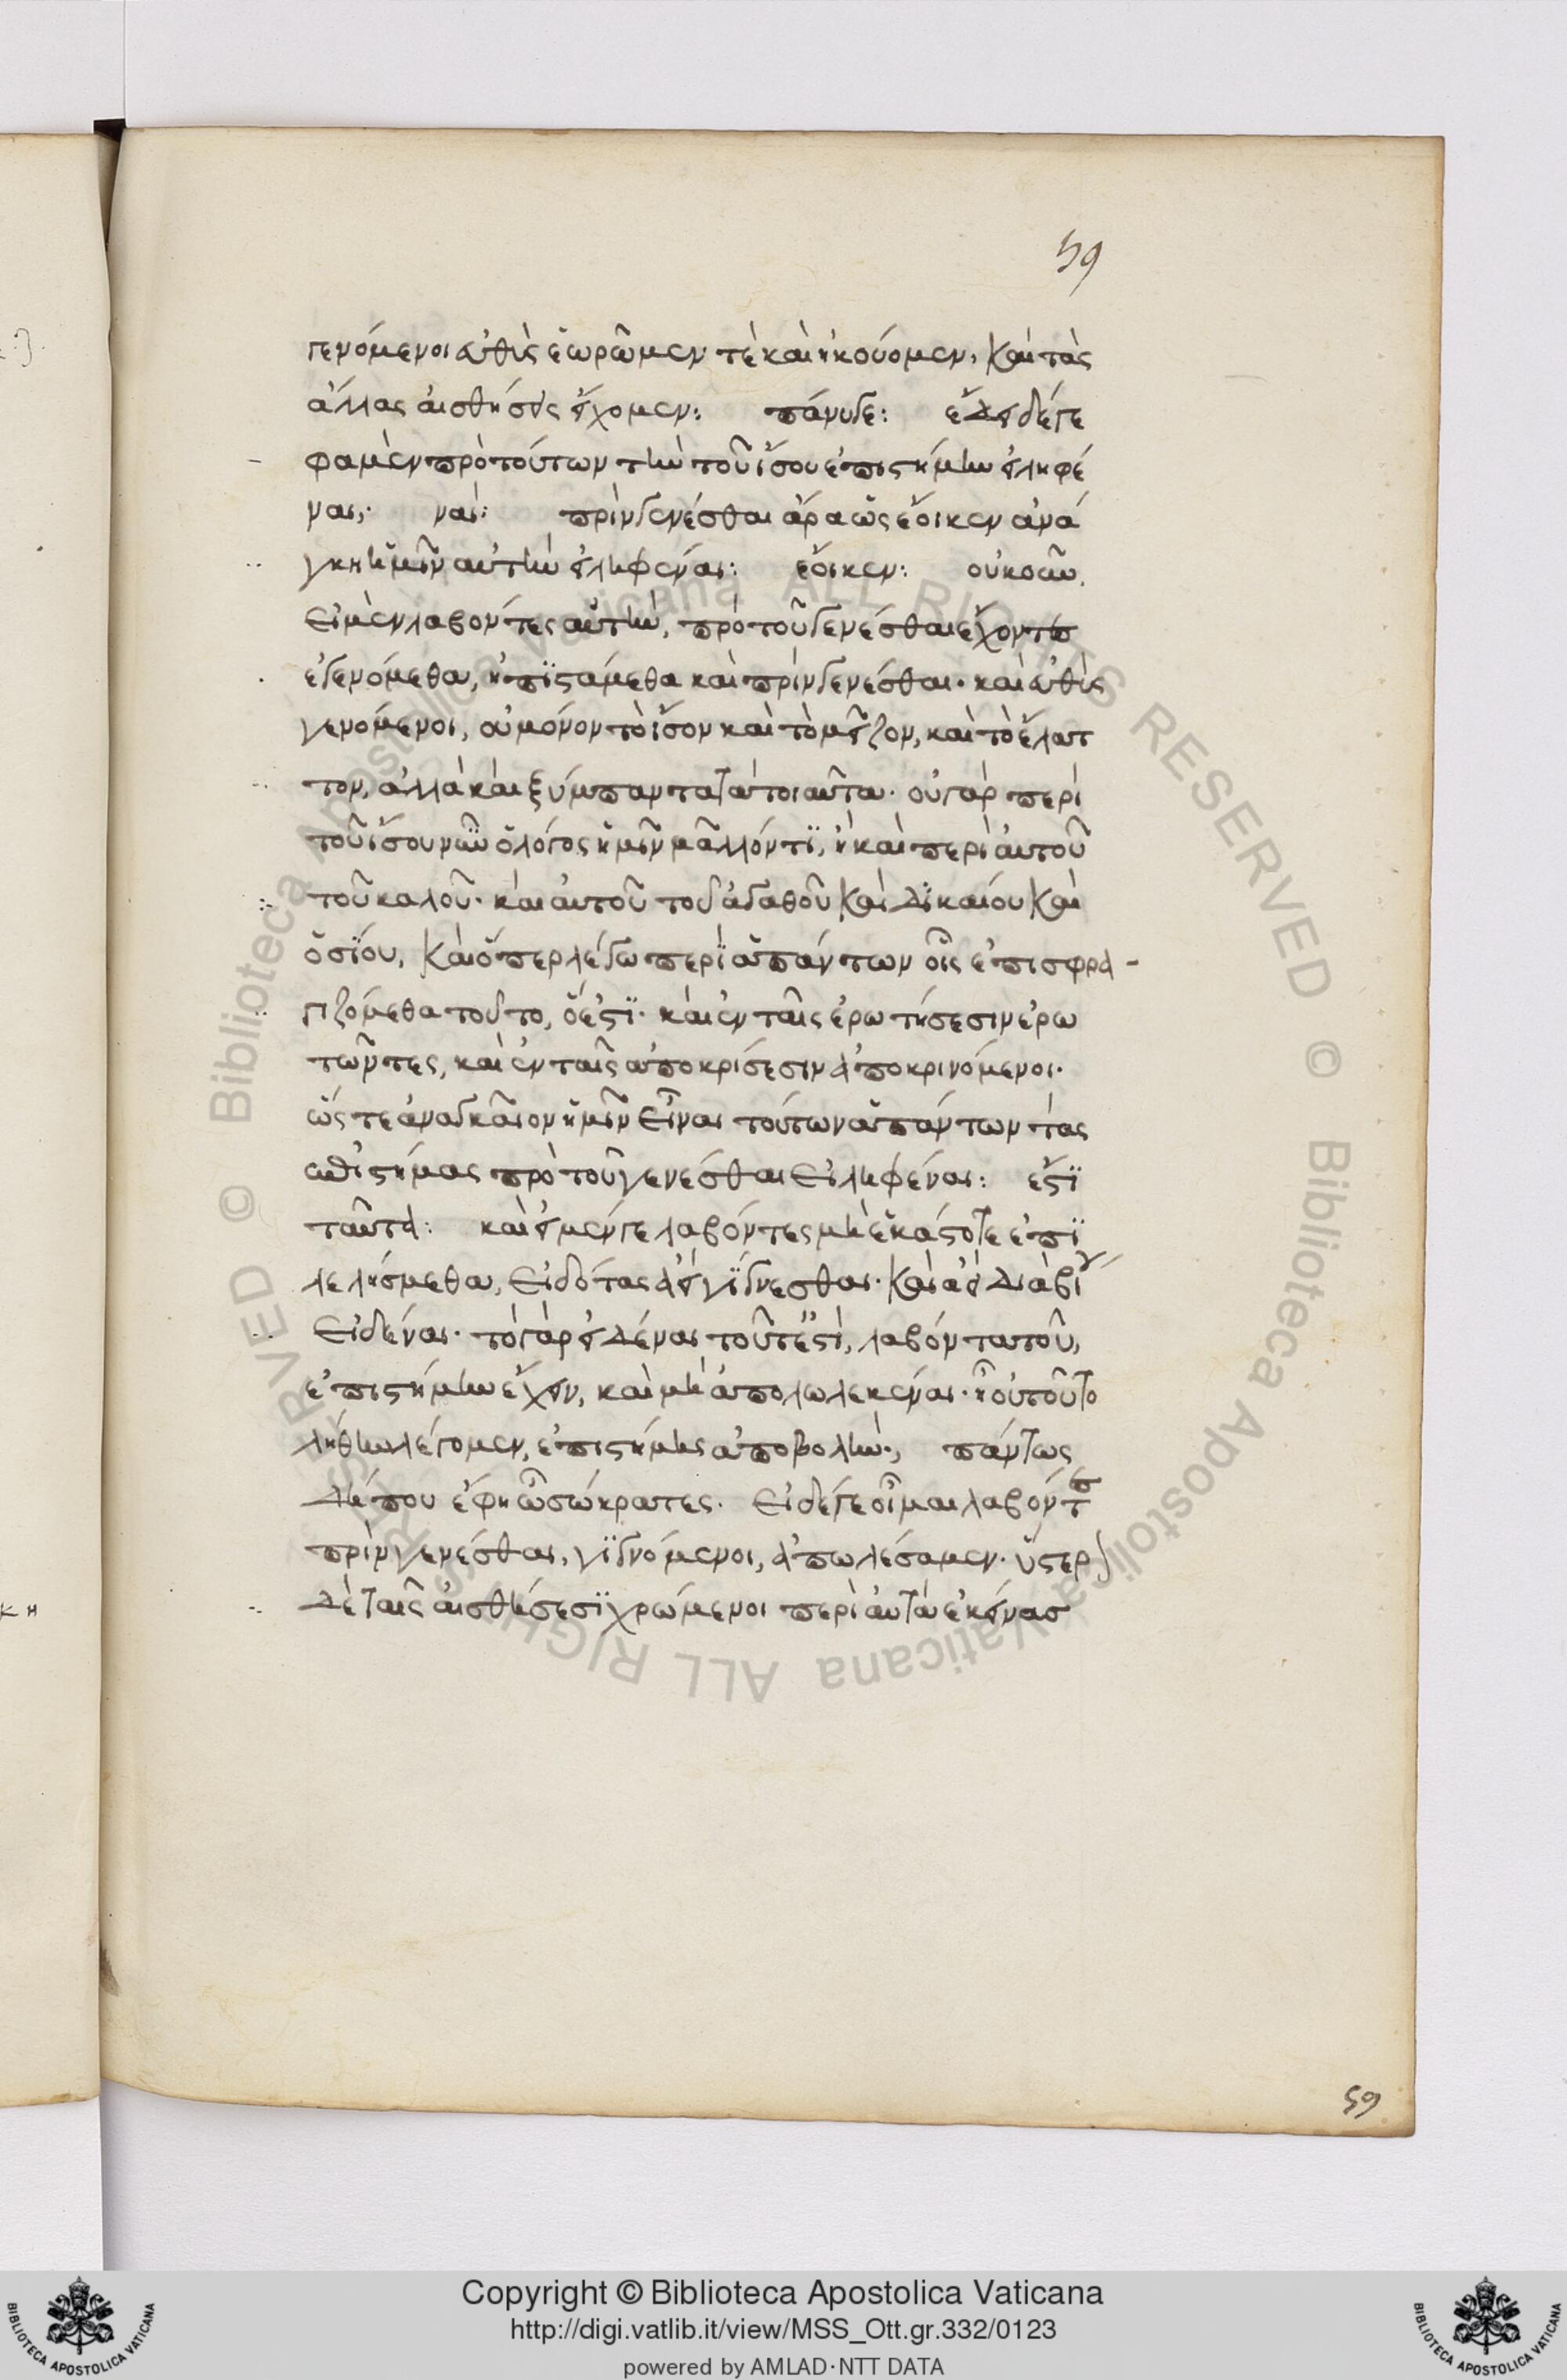 59
γενόμενοι εὐθὺς ἑωρῶμεν τὲ καὶ ἠκούομεν, καὶ τὰς
ἄλλας αἰσθήσεις εἴχομεν: πάνυ γε: ἔδει δέ γε
φαμὲν πρὸ τούτων τὴν τοῦ ἴσου ἐπιστήμην εἰληφέ
ναι; ναί: πρὶν γενέσθαι ἄρα ὡς ἔοικεν ἀνά
γκη ἡμῖν αὐτὴν εἰληφέναι: ἔοικεν: οὐκοῦν
εἰ μὲν λαβόντες αὐτὴν, πρὸ τοῦ γενέσθαι ἔχοντες
ἐγενόμεθα, ἠπϊστάμεθα καὶ πρὶν γενέσθαι· καὶ εὐθὺς
γενόμενοι, οὐ μόνον τὸ ἴσον καὶ τὸ μεῖζον, καὶ τὸ ἔλατ
τον, ἀλλὰ καὶ ξύμπαντα τὰ τοιαῦτα· οὐ γὰρ περὶ
τοῦ ἴσου νῦν ὁ λόγος ἡμῖν μᾶλλόν τϊ, ἢ καὶ περὶ αὐτοῦ
τοῦ καλοῦ· καὶ αὐτοῦ τοῦ ἀγαθοῦ καὶ δϊκαίου καὶ
ὁσϊου, καὶ ὅπερ λέγω περὶ ἁπάντων οἷς ἐπισφρα-
γιζόμεθα τοῦτο, ὅ ἐστϊ· καὶ ἐν ταῖς ἐρωτήσεσιν ἐρω
τῶντες, καὶ ἐν ταῖς ἀποκρίσεσιν ἀποκρινόμενοι·
ὥστε ἀναγκαῖον ἡμῖν εἶναι τούτων ἁπάντων τὰς
ἐπιστήμας πρὸ τοῦ γενέσθαι εἰληφέναι: ἔστϊ
ταῦτα: καὶ εἰ μέν γε λαβόντες μὴ ἑκάστοτε ἐπϊ
λελήσμεθα, εἰδότας ἀεὶ γίγνεσθαι· καὶ ἀεὶ διὰ βίου
εἰδέναι· τὸ γὰρ εἰδέναι τοῦτ' ἔστὶ, λαβόντα του,
ἐπιστήμην ἔχειν, καὶ μὴ ἀπολωλεκέναι· ἢ οὐ τοῦτο
λήθην λέγομεν, ἐπιστήμης ἀποβολήν; πάντως
δήπου ἔφη ὦ σώκρατες· εἰ δέ γε οἶμαι λαβόντες
πρὶν γενέσθαι, γϊγνόμενοι, ἀπωλέσαμεν· ὕστερον
δὲ ταῖς αἰσθήσεσϊ χρώμενοι περὶ αὐτὰ ἐκείνας
59
Copyright © Biblioteca Apostolica Vaticana
http://digi.vatlib.it/view/MSS_Ott.gr.332/0123
powered by AMLAD·NTT DATA